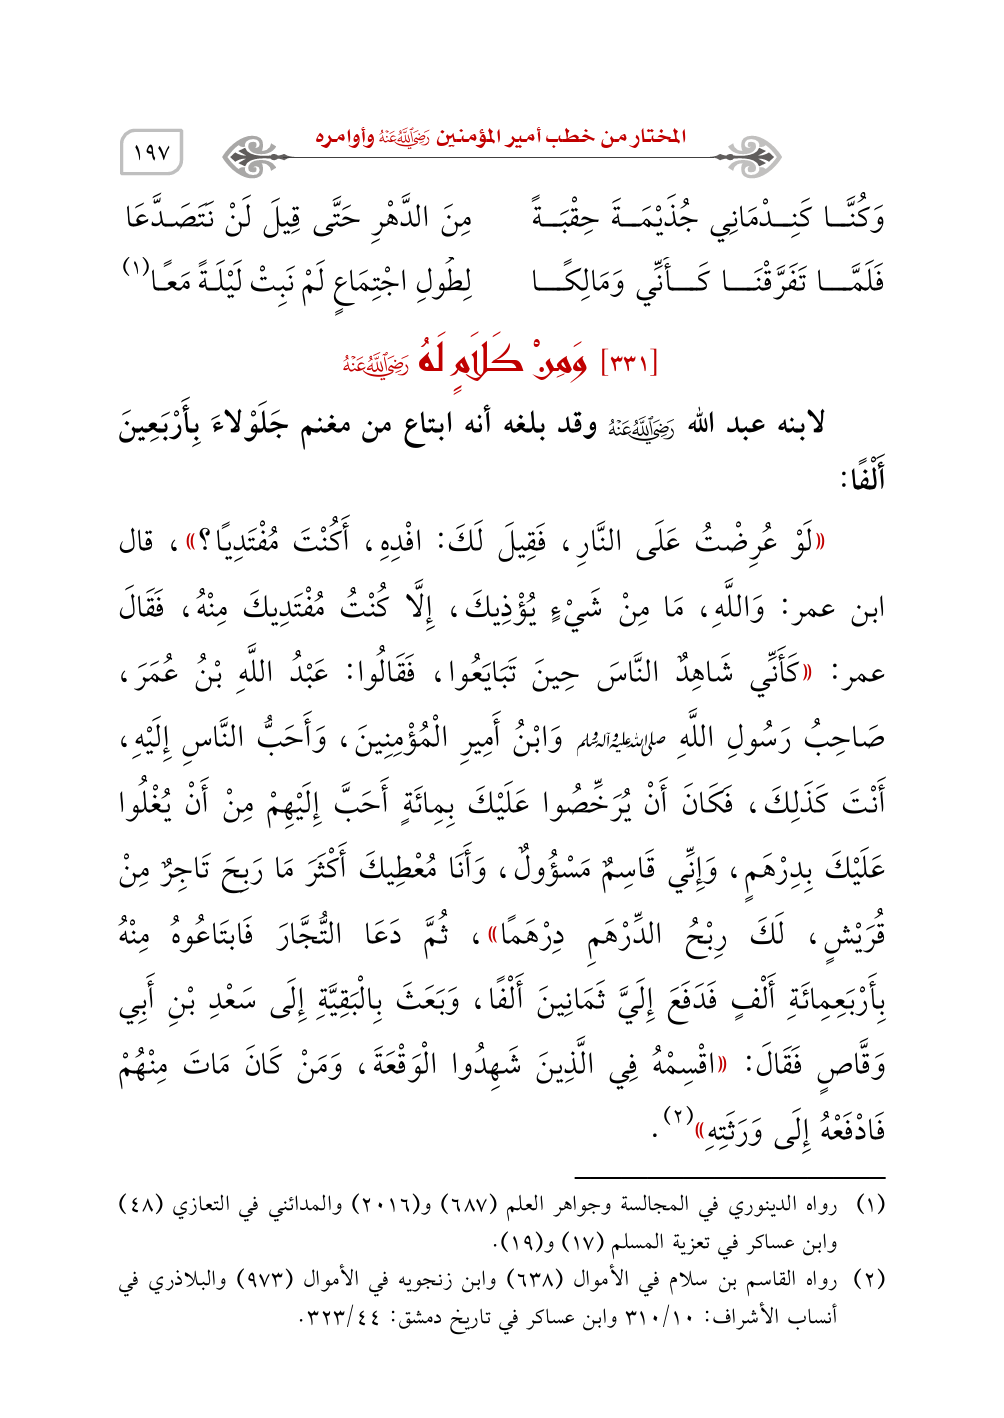 المختار من خطب أمير المؤمنين رَضِيَ اللَّهُ عَنْهُ وأوامره
١٩٧
وَكُنَّـــا كَنِـــدْمَانِي جُذَيْمَـــةَ حِقْبَـــةً مِنَ الدَّهْرِ حَتَّى قِيلَ لَنْ نَتَصَـدَّعَا
فَلَمَّـــا تَفَرَّقْنَـــا كَـــأَنِّي وَمَالِكًـــا لِطُولِ اجْتِمَاعٍ لَمْ نَبِتْ لَيْلَةً مَعًـا(١)
[٣٣١] وَمِنْ كَلَامٍ لَهُ رَضِيَ اللَّهُ عَنْهُ
لابنه عبد الله رَضِيَ اللَّهُ عَنْهُ وقد بلغه أنه ابتاع من مغنم جَلَوْلاءَ بِأَرْبَعِينَ
أَلْفًا:
«لَوْ عُرِضْتُ عَلَى النَّارِ، فَقِيلَ لَكَ: افْدِهِ، أَكُنْتَ مُفْتَدِيًا؟»، قال
ابن عمر: وَاللَّهِ، مَا مِنْ شَيْءٍ يُؤْذِيكَ، إِلَّا كُنْتُ مُفْتَدِيكَ مِنْهُ، فَقَالَ
عمر: «كَأَنِّي شَاهِدٌ النَّاسَ حِينَ تَبَايَعُوا، فَقَالُوا: عَبْدُ اللَّهِ بْنُ عُمَرَ،
صَاحِبُ رَسُولِ اللَّهِ صلى الله عليه وآله وسلم وَابْنُ أَمِيرِ الْمُؤْمِنِينَ، وَأَحَبُّ النَّاسِ إِلَيْهِ،
أَنْتَ كَذَلِكَ، فَكَانَ أَنْ يُرَخِّصُوا عَلَيْكَ بِمِائَةٍ أَحَبَّ إِلَيْهِمْ مِنْ أَنْ يُغْلُوا
عَلَيْكَ بِدِرْهَمٍ، وَإِنِّي قَاسِمٌ مَسْؤُولٌ، وَأَنَا مُعْطِيكَ أَكْثَرَ مَا رَبِحَ تَاجِرٌ مِنْ
قُرَيْشٍ، لَكَ رِبْحُ الدِّرْهَمِ دِرْهَمًا»، ثُمَّ دَعَا التُّجَّارَ فَابتَاعُوهُ مِنْهُ
بِأَرْبَعِمِائَةِ أَلْفٍ فَدَفَعَ إِلَيَّ ثَمَانِينَ أَلْفًا، وَبَعَثَ بِالْبَقِيَّةِ إِلَى سَعْدِ بْنِ أَبِي
وَقَّاصٍ فَقَالَ: «اقْسِمْهُ فِي الَّذِينَ شَهِدُوا الْوَقْعَةَ، وَمَنْ كَانَ مَاتَ مِنْهُمْ
فَادْفَعْهُ إِلَى وَرَثَتِهِ»(٢).
(١) رواه الدينوري في المجالسة وجواهر العلم (٦٨٧) و(٢٠١٦) والمدائني في التعازي (٤٨)
وابن عساكر في تعزية المسلم (١٧) و(١٩).
(٢) رواه القاسم بن سلام في الأموال (٦٣٨) وابن زنجويه في الأموال (٩٧٣) والبلاذري في
أنساب الأشراف: ٣١٠/١٠ وابن عساكر في تاريخ دمشق: ٣٢٣/٤٤.